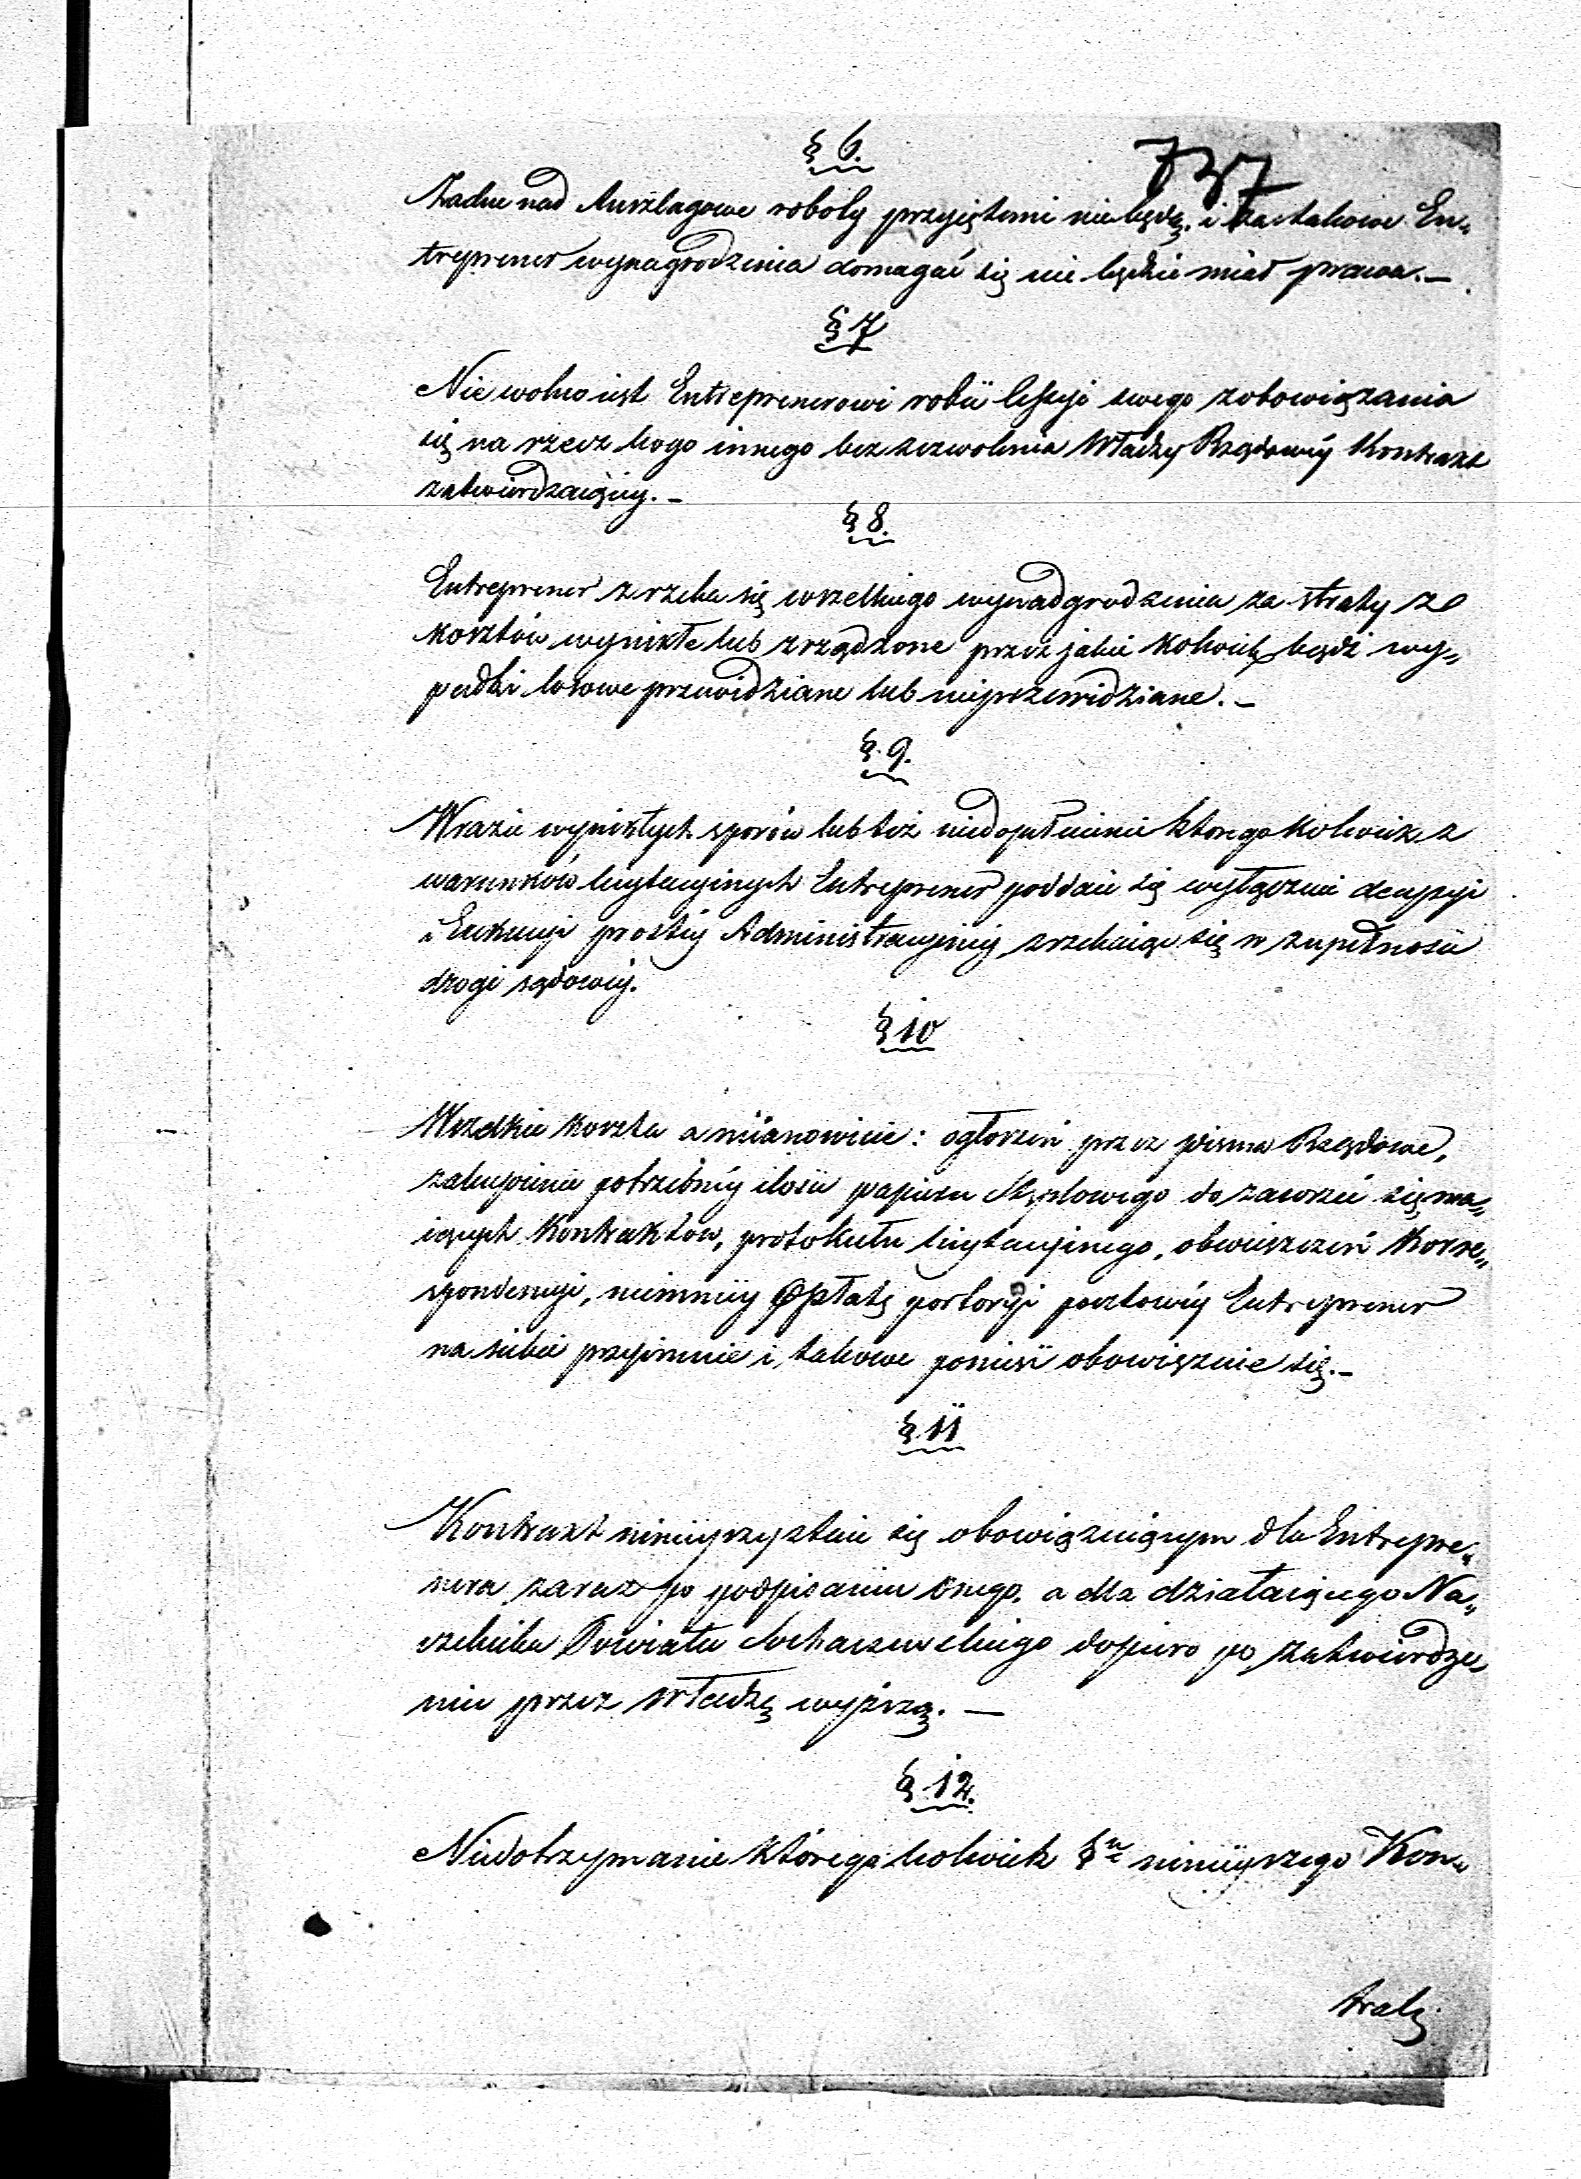 § 6.
737
Żadne nad Anszlagowe roboty przyiętemi nie będą, i za takowe En„
treprener wynagrodzenia domagać się nie będzie miał prawa.–
§ 7
Nie wolno iest Entreprenerowi robić cessyi swego zobowiązania
się na rzecz kogo innego bez zezwolenia Władzy Rządowéy Kontrakt
zatwierdzaiącey.–
§ 8.
Entreprener zrzeka się wszelkiego wynadgrodzenia za straty ze
kosztów wynikłe lub zrządzone przez jakie kolwiek bądź wy„
padki losowe przewidziane lub nieprzewidziane.–
§. 9.
W razie wynikłych sporów lub też niedopełnienia którego kolwiek z
warunków licytacyinych Entreprener poddaie się wyłącznie decyzyi
i Exekucyi prostéy Administracyinéy zrzekaiąc się w zupełności
drogi sądowéy.
§ 10
Wszelkie koszta a mianowicie: ogłoszeń przez pisma Rządowe,
zakupienie potrzebnéy ilości papieru Stęplowego do zawrzeć się ma„
iących Kontraktów, protokułu licytacyinego, obwieszczeń Korre„
spondencyi, niemniéy Opłatę portoryi pocztowéy Entreprener
na siebie przyimuie i takowe ponieść obowięzuie się.–
§. 11
Kontrakt ninieyszy staie się obowięzuiącym dla Entrepre„
nera zaraz po podpisaniu onego, a dla działaiącego Na„
czelnika Powiatu Sochaczewskiego dopiero po zatwierdze„
niu przez Władzę wyższą.–
§. 12.
Niedotrzymanie którego kolwiek §u ninieyszego Kon„
traktu